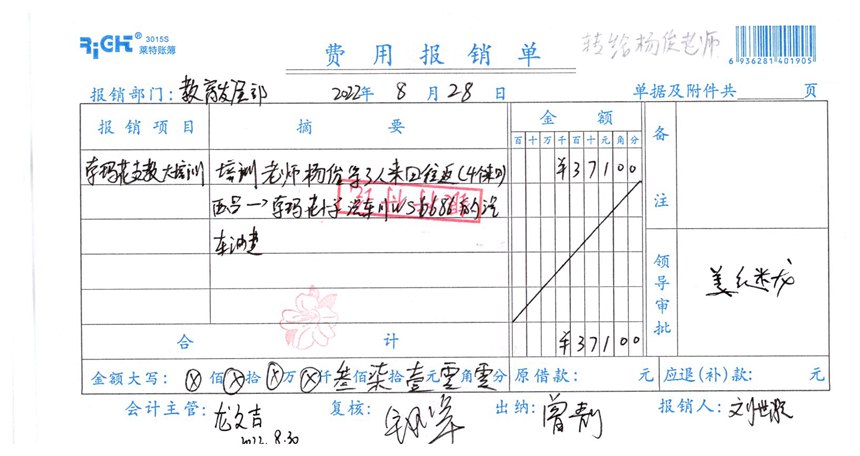 RiGHT® 3015S
莱特账簿
费用报销单
转给杨俊老师
6 936281 401905
报销部门：教育发展部 2022年 8月28日 单据及附件共 页
报销项目 摘要 金额 备注
百十万千百十元角分
索玛花支教大培训 培训老师杨俊等3人来回往返(4个来回) ¥37100
西昌→索玛花小学 汽车川W 的汽
车油费
领导审批
合计 ¥37100
金额大写：ⓧ佰ⓧ拾ⓧ万ⓧ仟叁佰柒拾壹元零角零分 原借款： 元 应退(补)款： 元
会计主管：龙文吉 复核： 出纳：曾 报销人：刘世
2022.8.30